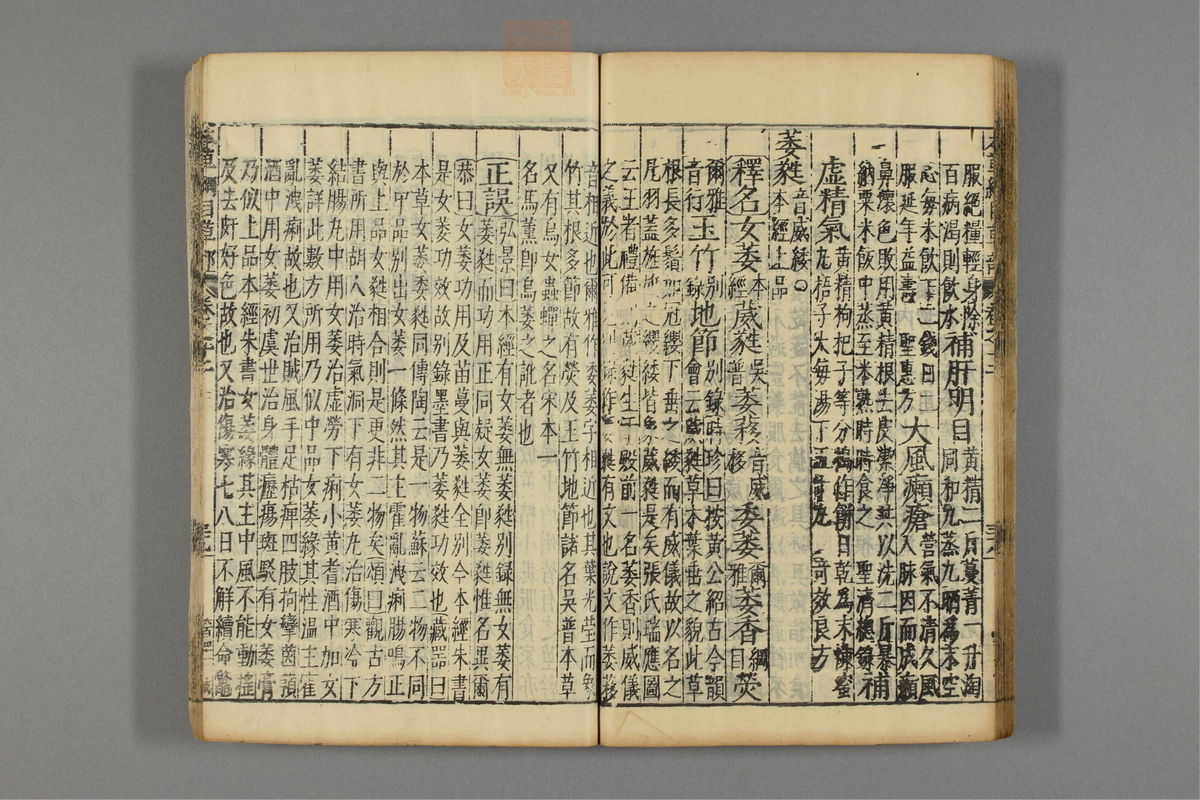 服絕糧輕身除百病渴則飲水 補肝明目 黃精二斤蔓菁一升淘同和九蒸九晒爲末空
心每米飲下二錢日二服延年益壽 聖惠方 大風癩瘡 營氣不清久風入脉因而成癩
鼻壞色敗用黃精根去皮潔淨共以洗二斤暴
納粟米飯中蒸至米熟時時食之 聖濟總錄 補
虛精氣 黃精枸杞子等分搗作餅日乾爲末煉蜜丸梧子大每湯下五十丸 奇效良方
萎蕤 音威綏○本經上品
釋名 女萎 本經 葳蕤 吳普 萎𦽊 音威移 委萎 爾雅 萎香 綱目 熒
爾雅音行 玉竹 別錄 地節 別錄 時珍曰按黃公紹古今韻會云葳蕤草木葉垂之貌此草
根長多鬚如冠纓下垂之緌而有威儀故以名之
凡羽蓋旌旗之纓緌皆象葳蕤是矣張氏瑞應圖
云王者禮備則葳蕤生于殿前一名萎香則威儀
之義於此可見別錄作萎蕤省文也說文作萎䔟
音相近也爾雅作委萎字相近也其葉光瑩而象
竹其根多節故有熒及玉竹地節諸名吳普本草
又有烏女蟲蟬之名宋本一
名馬薰即烏萎之訛者也
正誤 弘景曰本經有女萎無萎蕤別録無女萎有萎蕤而功用正同疑女萎即萎蕤惟名異爾
恭曰女萎功用及苗蔓與萎蕤全別今本經朱書
是女萎功效故別錄墨書乃萎蕤功效也藏器曰
本草女萎萎蕤同傳陶云是一物蘇云二物不同
於中品別出女萎一條然其主霍亂洩痢腸鳴正
與上品女蕤相合則是更非二物矣頌曰觀古方
書所用胡人治時氣洞下有女萎丸治傷寒冷下
結腸丸中用女萎治虛勞下痢小黄耆酒中加女
萎詳此數方所用乃似中品女萎緣其性溫主霍
亂洩痢故也又治賊風手足枯痺四肢拘攣茵蕷
酒中用女萎初虞世治身體癧瘍斑駁有女萎膏
乃似上品本經朱書女萎緣其主中風不能動搖
及去皯好色故也又治傷寒七八日不解續命鱉